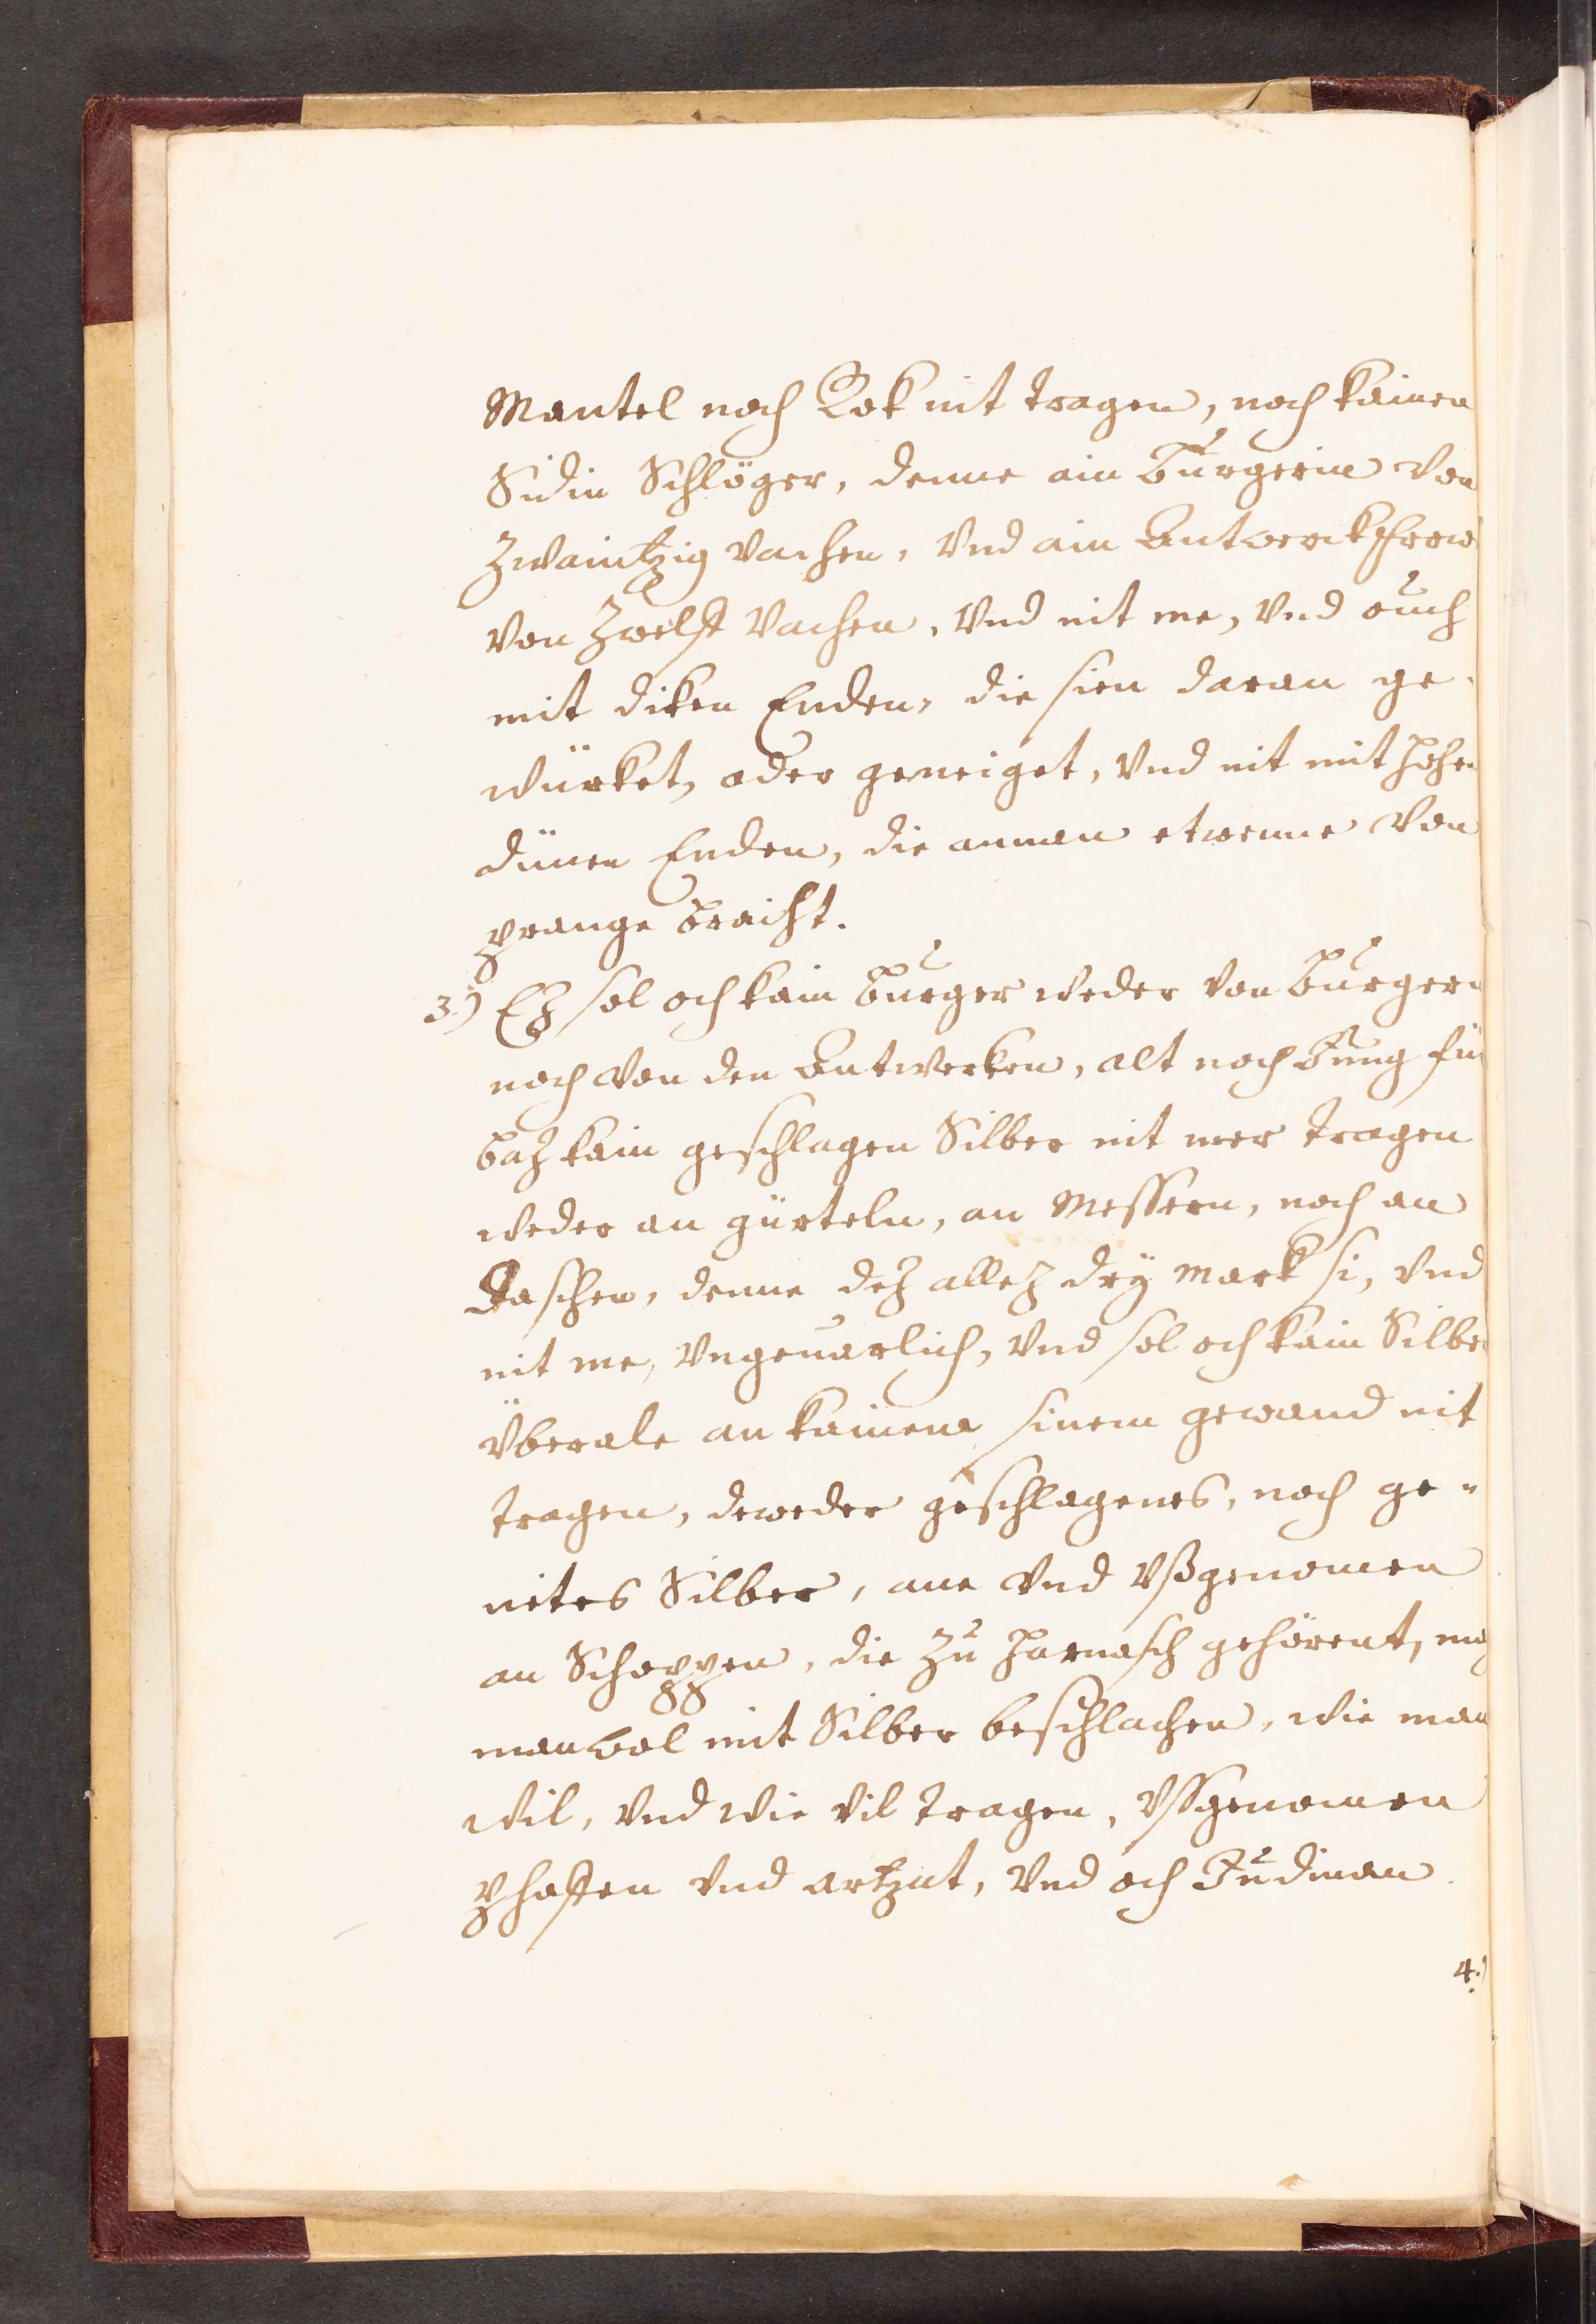 Mantel noch Rok nit tragen, noch kainen
Sidin Schlöger, denne ain Burgerin von
Zwaintzig vachen, vnd ain Antwerckfrow
von Zwelff vachen, vnd nit me, vnd ouch
mit diken Enden, die sien daran ge-
würket, oder geneiget, vnd nit mit hohen
dünen Enden, die anman etwenne von
prange bracht.
3.) Ez sol och kain Burger weder von Burgern
noch von den Antwerken, alt noch Jung für
baz kain geschlagen Silber nit mer tragen
weder an gürteln, an Messern, noch an
Taschen, denne dez allez dry Mark si, vnd
nit me, vngeuarlich, vnd sol och kain Silber
Überale an kainem sinem gewand nit
tragen, deweder geschlagenes, noch ge-
nites Silber, ane vnd vßgenomen
an Schoppen, die Zu Harnasch gehörent, mag
man wol mit Silber beschlachen, wie man
wil, vnd wie vil tragen, vssgenomen
Phaffen vnd artzat, vnd och Judman.
4.)